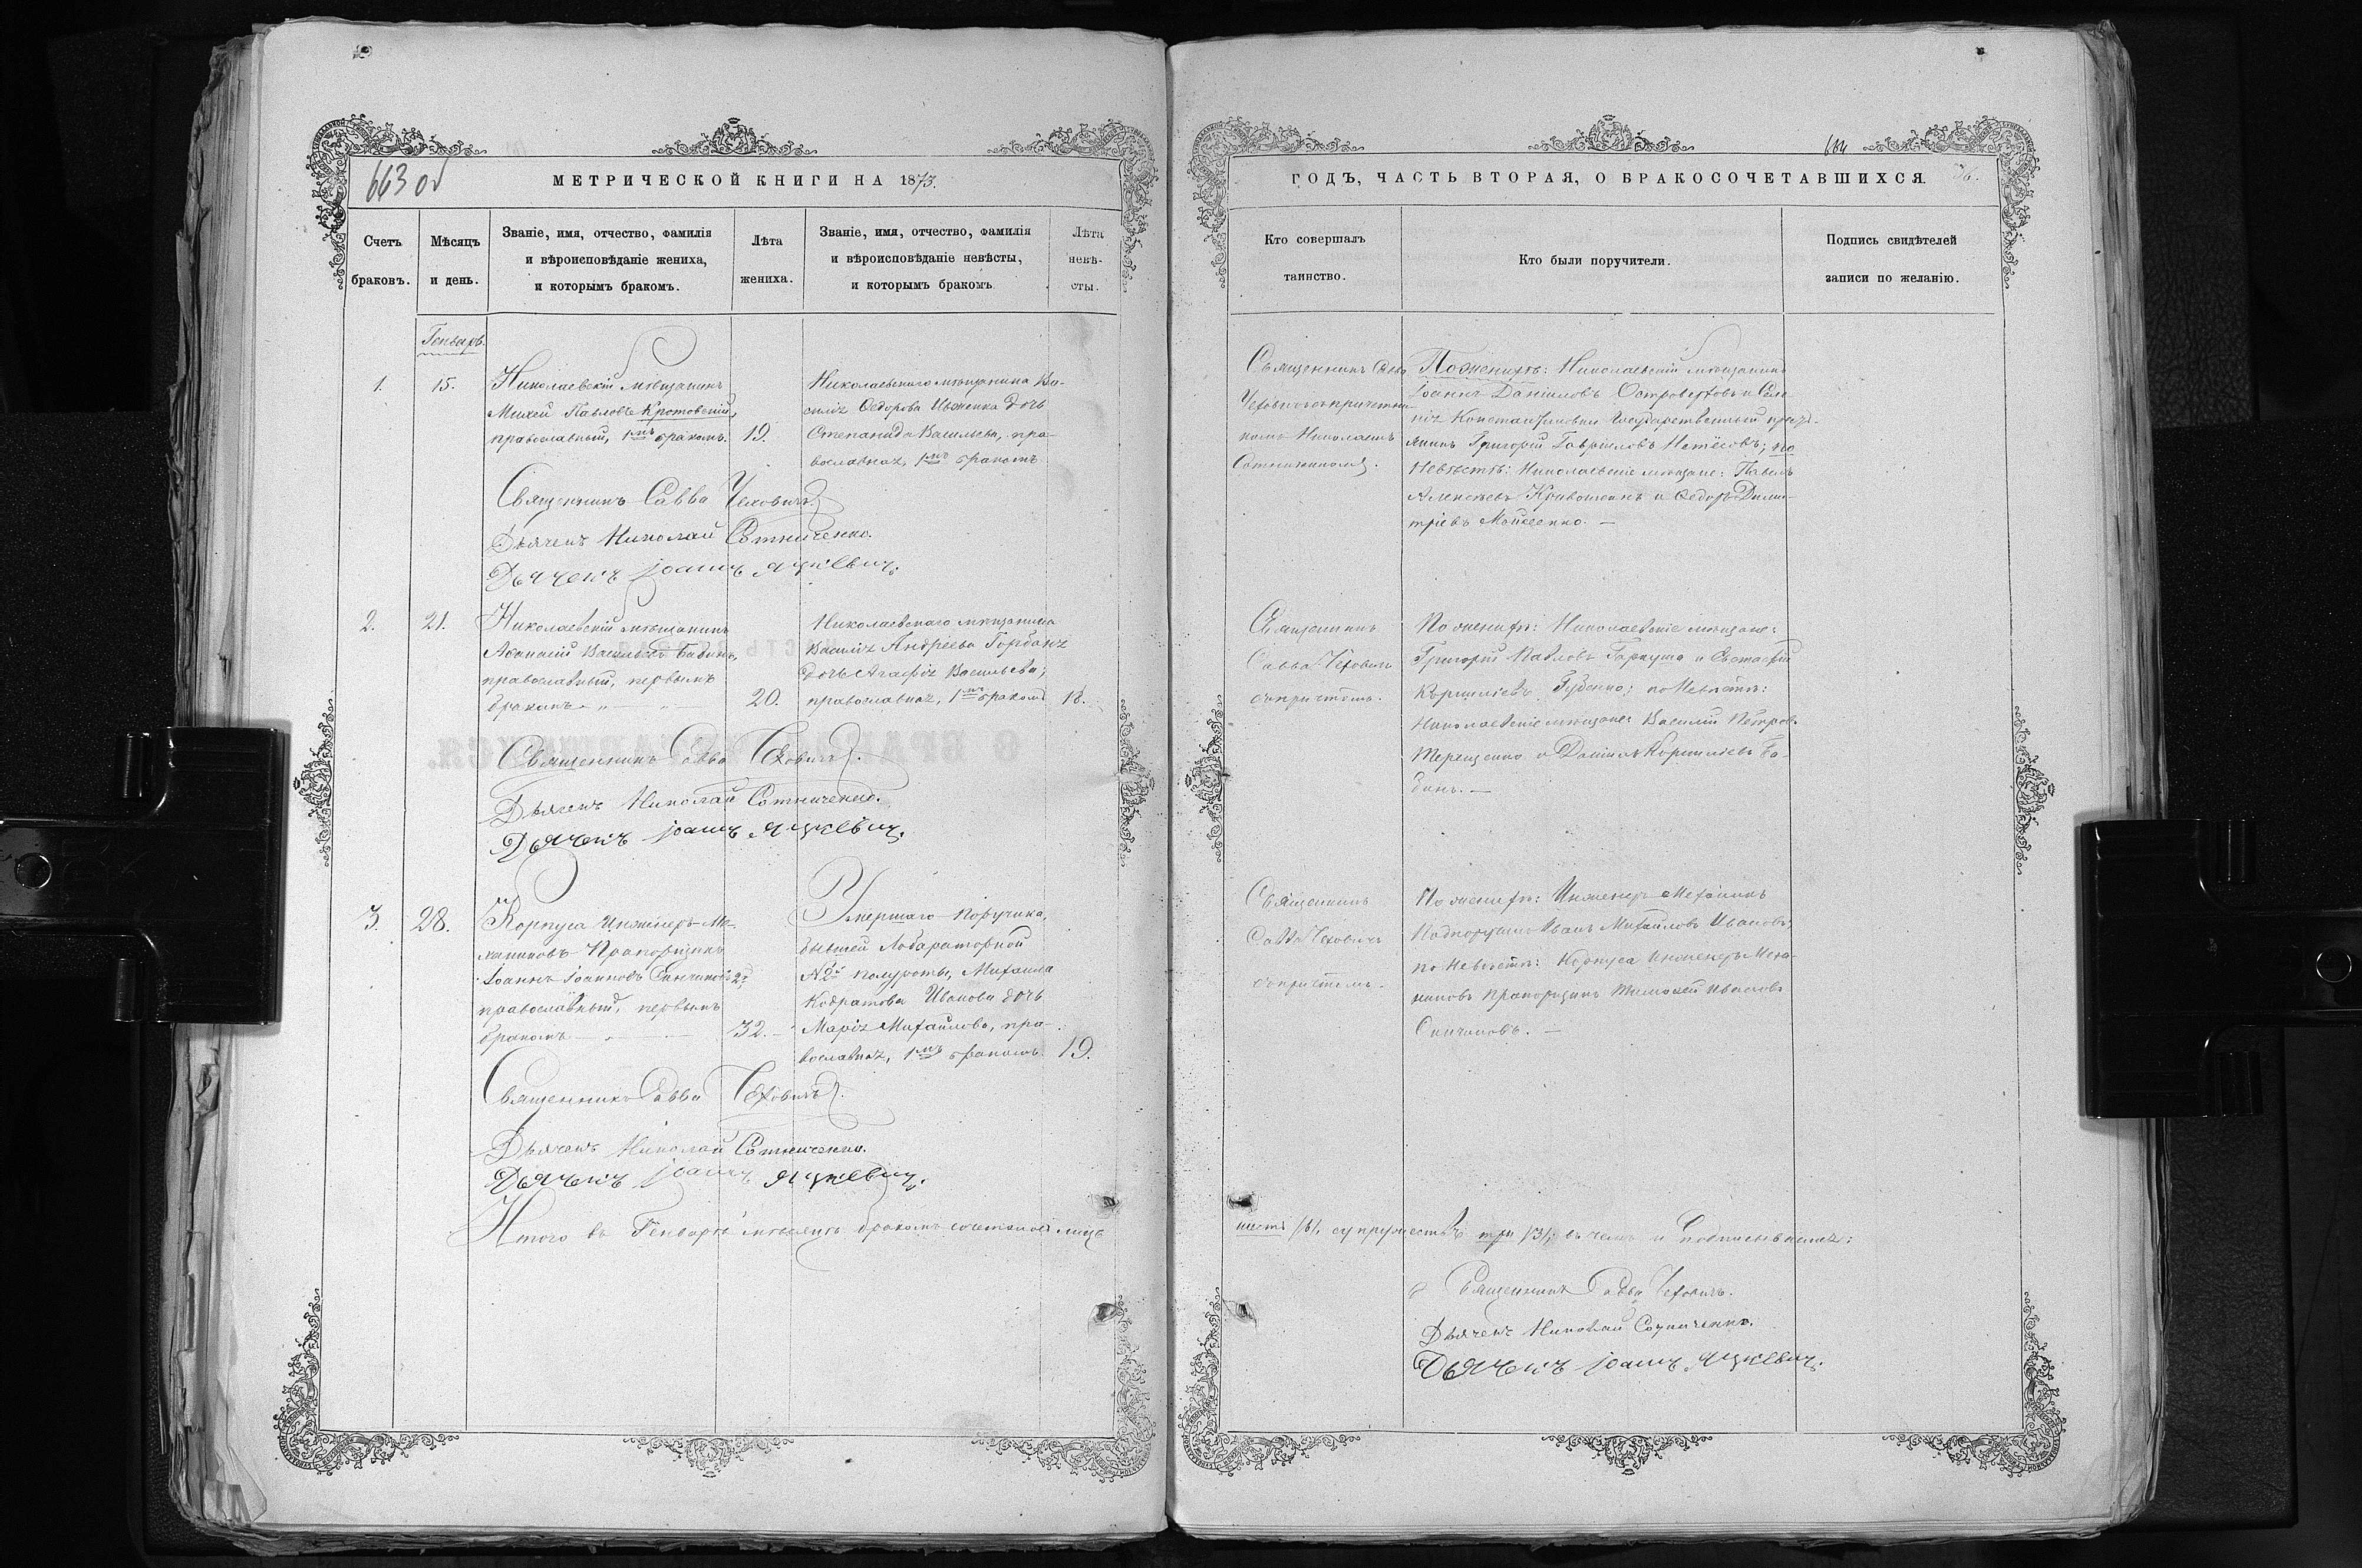 663 об
МЕТРИЧЕСКОЙ КНИГИ НА 1873.
Счетъ
браковъ.
Мѣсяцъ
и день.
Званіе, имя, отчество, фамилія
и вѣроисповѣданіе жениха,
и которымъ бракомъ.
Лѣта
жениха.
Званіе, имя, отчество, фамилія
и вѣроисповѣданіе невѣсты,
и которымъ бракомъ
Лѣта
невѣ-
сты.
Генварь.
1.
15.
Николаевскій мѣщанинъ
Михей Павловъ Кротовскій,
православный, 1мъ бракомъ.
19.
Николаевскаго мѣщанина Ва-
силія Ѳедорова Ивженка дочь
Степанида Васильева, пра-
вославная, 1мъ бракомъ
Священникъ Савва Чеховичъ
Дьячекъ Николай Сотниченко.
Дьячекъ Іоаннъ Яцкевич.
2.
21.
Николаевскій мѣщанинъ
Аѳанасій Васильевъ Бабинъ,
православный, первымъ
бракомъ
20.
Николаевскаго мѣщанина
Василія Андреева Горбаня
дочь Агафія Васильева,
православная, 1мъ бракомъ
18.
Священникъ Савва Чеховичъ.
Дьячекъ Николай Сотниченко.
Дьячекъ Іоаннъ Яцкевич.
3.
28.
Корпуса Инженеръ-Ме-
ханиковъ Прапорщикъ
Іоаннъ Іоанновъ 2й
православный, первымъ
бракомъ
32.
Умершаго Поручика,
бывшей Лабараторной
№2й полуроты, Михаила
Кодратова Иванова дочь
Марія Михайлова, пра-
вославная, 1мъ бракомъ.
19.
Священникъ Савва Чеховичъ.
Дьячекъ Николай Сотниченко.
Дьячекъ Іоаннъ Яцкевич.
Итого въ Генварѣ мѣсяцѣ бракомъ сочетаносъ лицъ
664
ГОДЪ, ЧАСТЬ ВТОРАЯ, О БРАКОСОЧЕТАВШИХСЯ.
Кто совершалъ
таинство.
Кто были поручители.
Подпись свидѣтелей
записи по желанію.
Священникъ Савва
Чеховичъ съ причетни-
комъ Николаемъ
По женихѣ: Николаевскій мѣщанинъ
Іоаннъ Даніиловъ Островерховъ и
Государственный
Григорій Гавриловъ Нетёсовъ; по
Невѣстѣ: Николаевскіе мѣщане: Павелъ
Алексѣевъ Кривошеинъ и Ѳедоръ Дими-
тріевъ Мойсеенко.
Священникъ
Савва Чеховичъ
съ причтомъ.
По женихѣ: Николаевскіе мѣщане:
Григорій Павловъ Гаркуша и Евстафій
Корниліевъ Губенко; по Невѣстѣ:
Николаевскіе мѣщане: Василій Петровъ
Терещенко и Даніилъ Корниліевъ Ба-
бинъ.
Священникъ
Савва Чеховичъ
съ причтомъ.
По женихѣ: Инженеръ Механикъ
Подпоручикъ Иванъ Михайловъ Ивановъ;
по Невѣстѣ: Корпуса Инженеръ Меха-
никовъ Прапорщикъ Тимоѳей Ивановъ
шесть /6/, супружествъ три /3/; въ чемъ и подписываемся:
Священникъ Савва Чеховичъ.
Дьячекъ Николай Сотниченко.
Дьячекъ Іоаннъ Яцкевич.